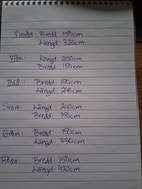 Bredd 150cm
Längd 320cm
Vita: Längd 200cm
Bredd 150cm
Blå: Bredd 150cm
Längd 240cm
Svart: Längd 200cm
Bredd 150cm
Grön: Bredd 150cm
Längd 390cm
Röda: Bredd 150cm
Längd 420cm